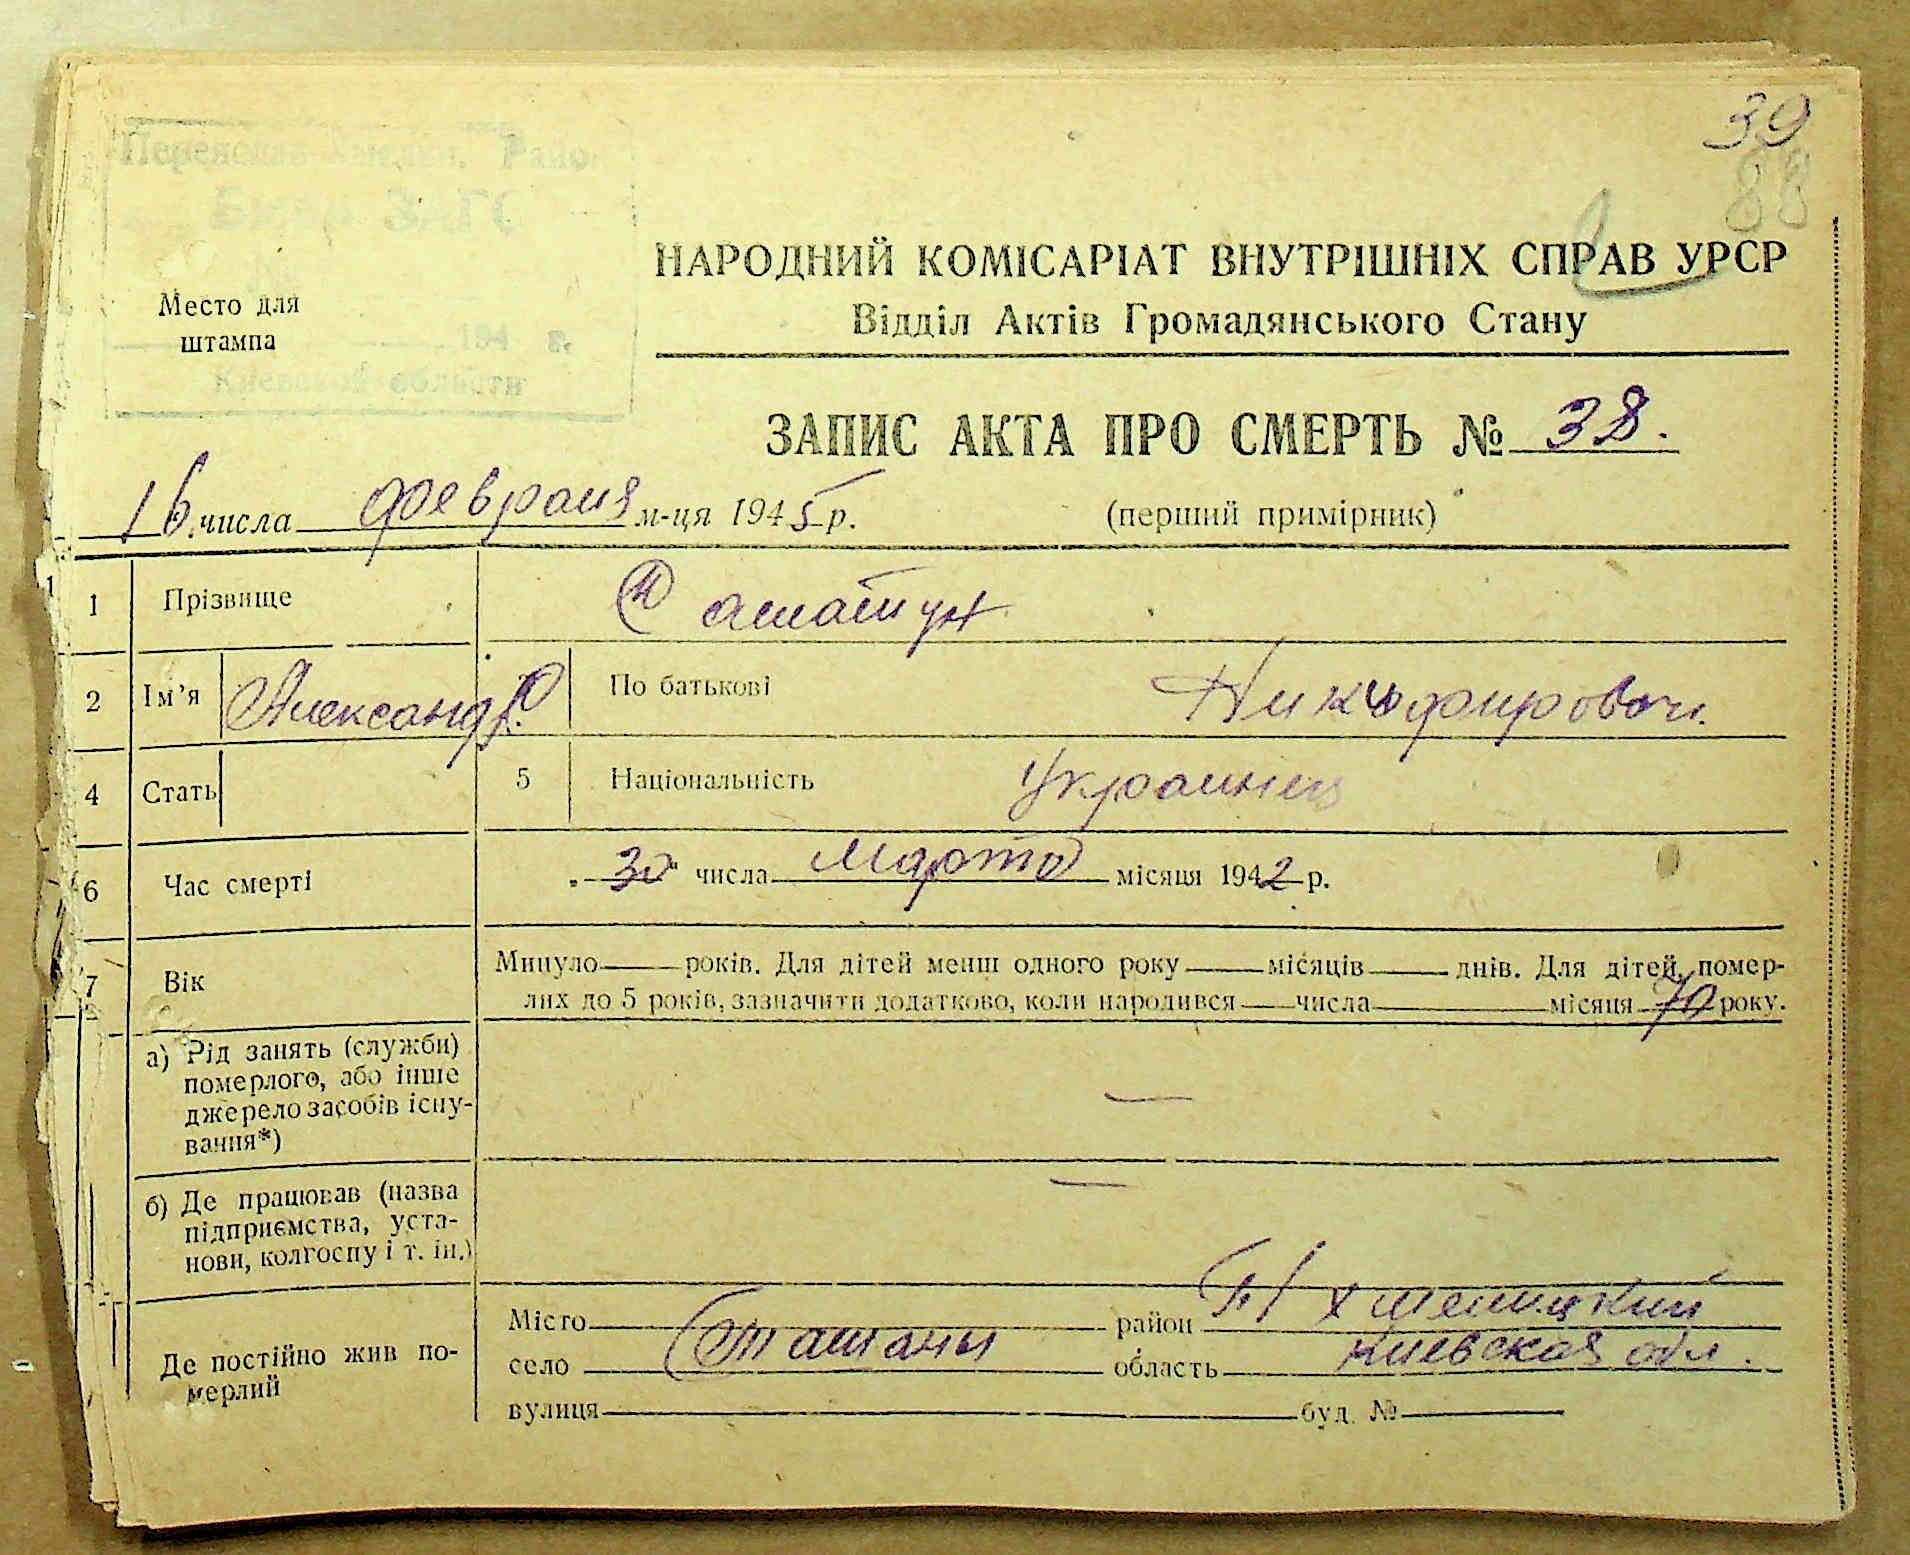 39
88
НАРОДНИЙ КОМІСАРІАТ ВНУТРІШНІХ СПРАВ УРСР
Відділ Актів Громадянського Стану
Место для
штампа
194 г.
Киевской области
ЗАПИС АКТА ПРО СМЕРТЬ № 38.
16 числа февраля м-ця 1945 р. (перший примірник)
1 Прізвище
2 Ім'я Александр По батькові Никифирович
4 Стать 5 Національність Украинец
6 Час смерті 30 числа Марта місяця 1942 р.
7 Вік Минуло років. Для дітей менш одного року місяців днів. Для дітей, помер-
лих до 5 років, зазначити додатково, коли народився числа місяця 70 року.
а) Рід занять (служби)
померлого, або інше
джерело засобів існу-
вання*) —
б) Де працював (назва
підприємства, уста-
нови, колгоспу і т. ін.) —
Де постійно жив по-
мерлий
Місто район П/Хмелицкий
село Сташаны область Киевская обл.
вулиця буд. №